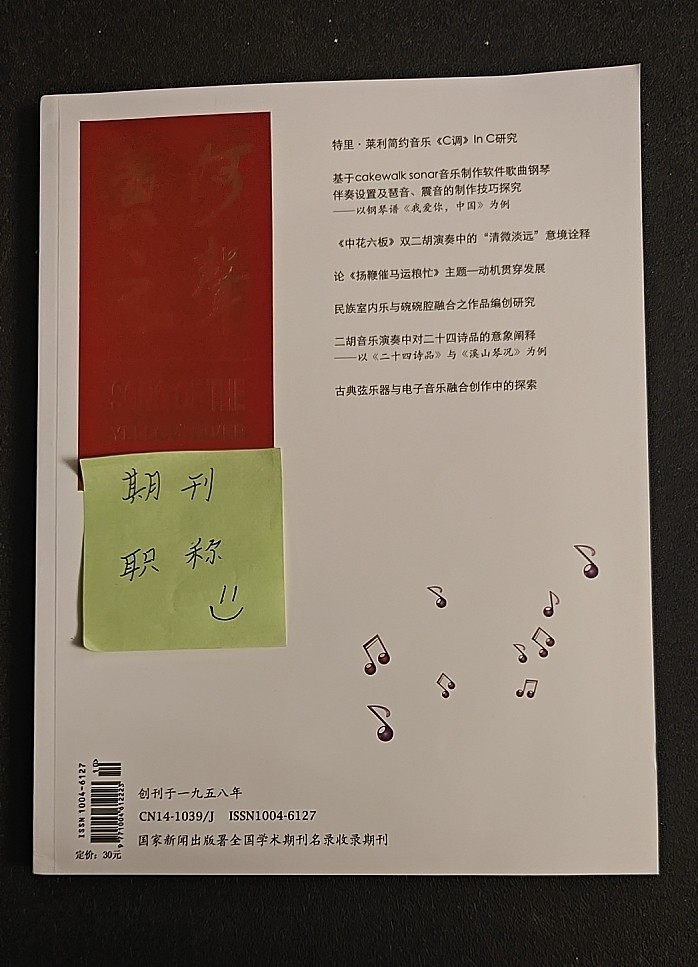 黄河
之聲
特里·莱利简约音乐《C调》In C研究
基于cakewalk sonar音乐制作软件歌曲钢琴
伴奏设置及琶音、震音的制作技巧探究
——以钢琴谱《我爱你，中国》为例
《中花六板》双二胡演奏中的“清微淡远”意境诠释
论《扬鞭催马运粮忙》主题一动机贯穿发展
民族室内乐与碗碗腔融合之作品编创研究
二胡音乐演奏中对二十四诗品的意象阐释
——以《二十四诗品》与《溪山琴况》为例
古典弦乐器与电子音乐融合创作中的探索
期刊
职称
ISSN 1004-6127
10>
9 771004 612223
定价：30元
创刊于一九五八年
CN14-1039/J ISSN1004-6127
国家新闻出版署全国学术期刊名录收录期刊